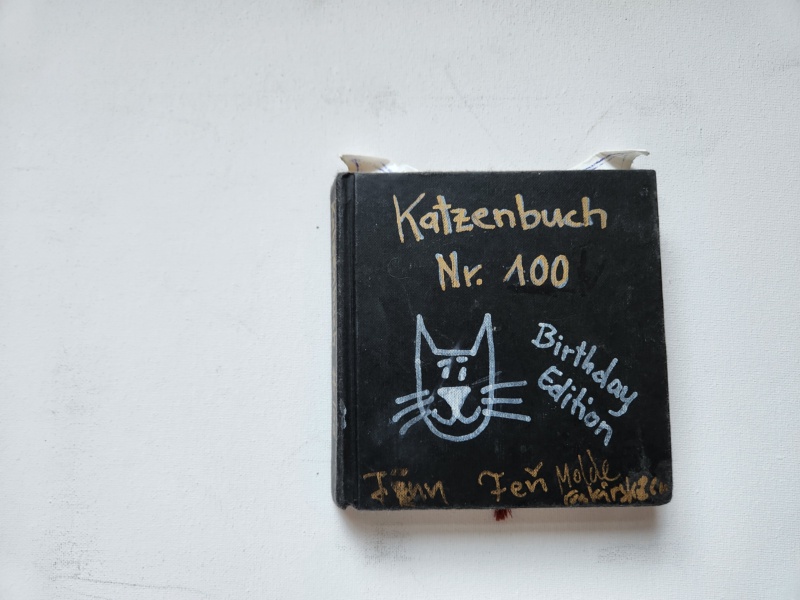 Katzenbuch
Nr. 100
Birthday
Edition
Molde